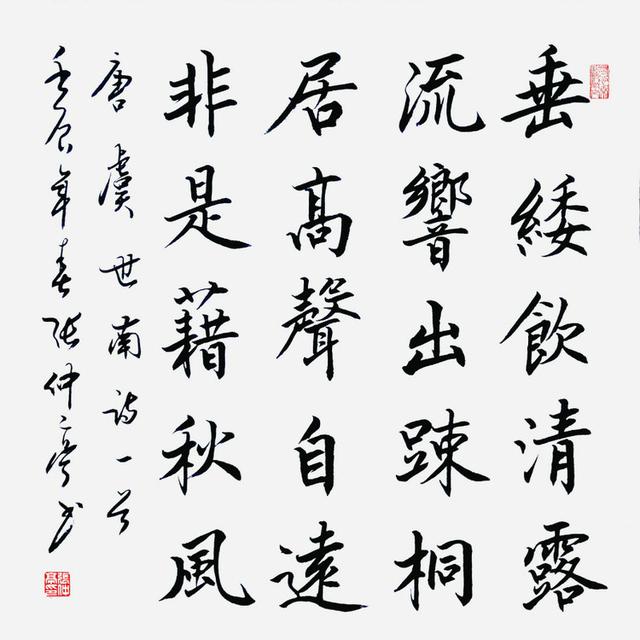 垂緌飲清露
流響出踈桐
居髙聲自遠
非是藉秋風
唐虞世南詩一首
壬辰年春張仲亭书